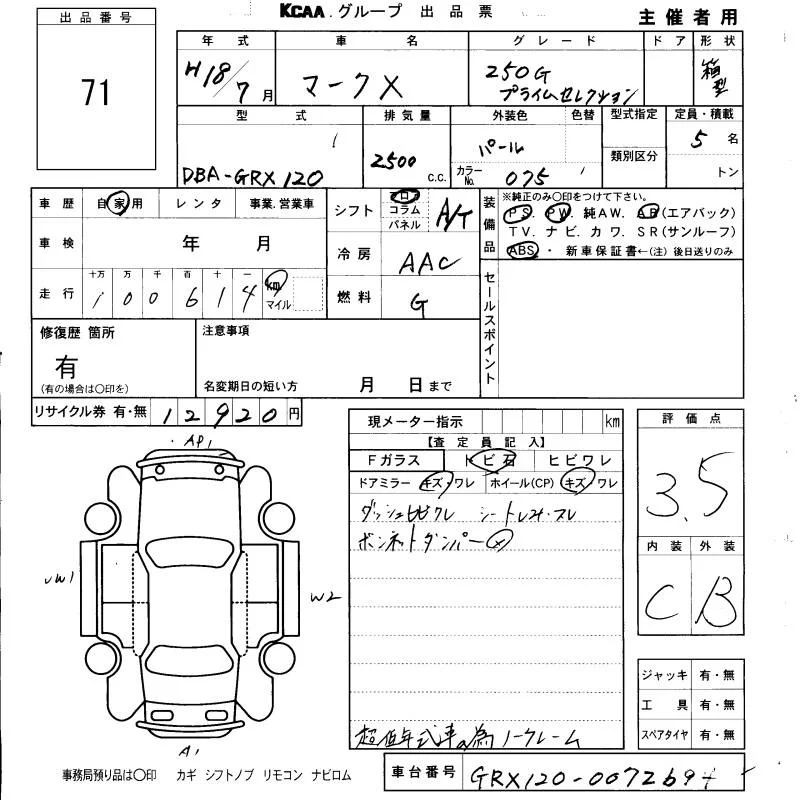 KCAA グループ 出品票
主催者用
出品番号
71
年式 車名 グレード ドア 形状
H18/7月 マークX 250G プライムセレクション 箱型
型式 排気量 外装色 色替 型式指定 定員・積載
DBA-GRX120 2500 c.c. パール 5名
カラーNo. 075 類別区分 トン
車歴 自家用 レンタ 事業.営業車
車検 年 月
走行 十万 万 千 百 十 一
100614 km マイル
シフト フロア コラム パネル A/T
冷房 AAC
燃料 G
装備品
※純正のみ〇印をつけて下さい。
PS. PW. 純AW. AB(エアバック)
TV. ナビ. カワ. SR(サンルーフ)
ABS・新車保証書←(注)後日送りのみ
セールスポイント
修復歴 箇所
有
(有の場合は〇印を)
注意事項
名変期日の短い方 月 日まで
リサイクル券 有・無 12920円
現メーター指示 km
【査定員記入】
Fガラス トビ石 ヒビワレ
ドアミラー キズ・ワレ ホイール(CP) キズ・ワレ
ダッシュヒビワレ シートレスレ・スレ
ボンネットダンパー㋱
超低年式車の為ノークレーム
評価点
3.5
内装 外装
C B
AP1
W1
W2
A1
ジャッキ 有・無
工具 有・無
スペアタイヤ 有・無
事務局預り品は〇印 カギ シフトノブ リモコン ナビロム
車台番号 GRX120-0072694